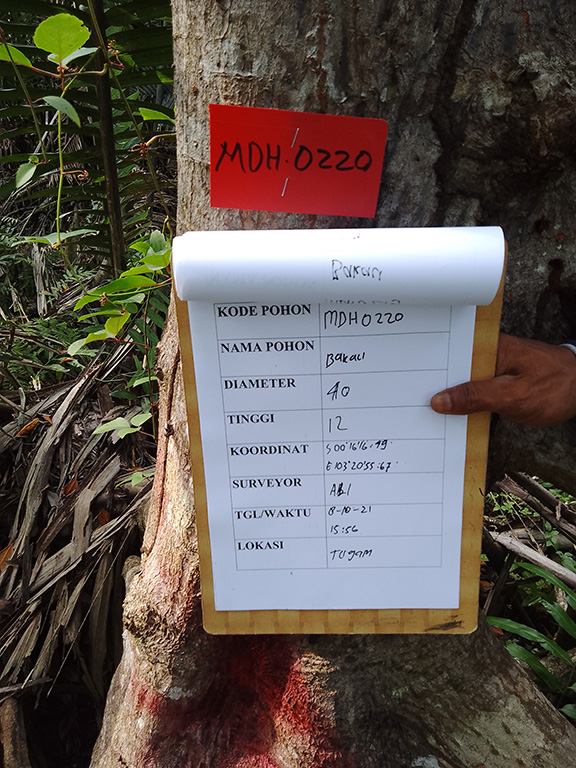 MDH.0220
KODE POHON MDH0220
NAMA POHON Bakau
DIAMETER 40
TINGGI 12
KOORDINAT S 00°16'16.49"
E 103°20'55.67"
SURVEYOR ALI
TGL/WAKTU 8-10-21
15:56
LOKASI